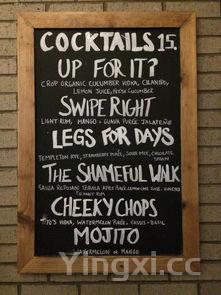 COCKTAILS 15.
UP FOR IT?
CROP ORGANIC CUCUMBER VODKA, CILANTRO,
LEMON JUICE, FRESH CUCUMBER
SWIPE RIGHT
LIGHT RUM, MANGO + GUAVA PURÉE, JALAPEÑO
LEGS FOR DAYS
TEMPLETON RYE, STRAWBERRY PURÉE, SOUR MIX, CHOCOLATE
THE SHAMEFUL WALK
SAUZA REPOSADO TEQUILA LIME
RUM
CHEEKY CHOPS
VODKA, WATERMELON PURÉE, CASSIS + BASIL
MOJITO
WATERMELON OR MANGO
Yingxi.cc